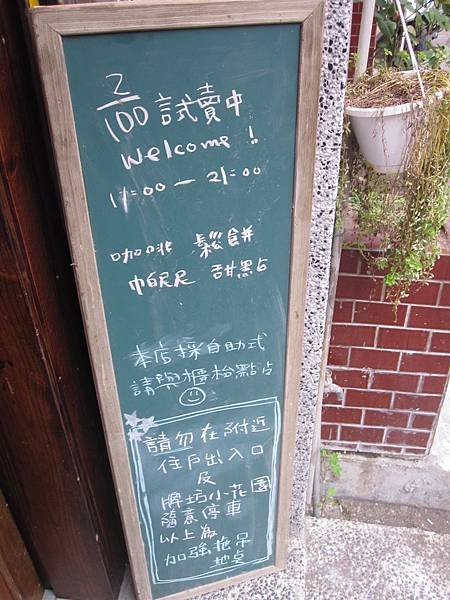 2/100 試賣中
Welcome!
11:00 — 21:00
咖啡 鬆餅
帕尼尼 甜點
本店採自助式
請與櫃枱點点
請勿在附近
住戶出入口
及
牌坊小花園
隨意停車
以上為
加強拖吊
地点